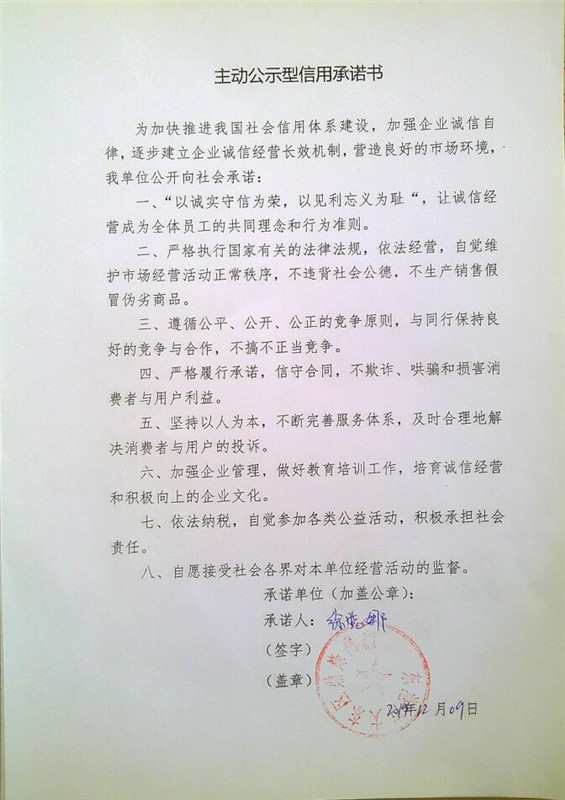 主动公示型信用承诺书
为加快推进我国社会信用体系建设，加强企业诚信自
律，逐步建立企业诚信经营长效机制，营造良好的市场环境，
我单位公开向社会承诺：
一、“以诚实守信为荣，以见利忘义为耻“，让诚信经
营成为全体员工的共同理念和行为准则。
二、严格执行国家有关的法律法规，依法经营，自觉维
护市场经营活动正常秩序，不违背社会公德，不生产销售假
冒伪劣商品。
三、遵循公平、公开、公正的竞争原则，与同行保持良
好的竞争与合作，不搞不正当竞争。
四、严格履行承诺，信守合同，不欺诈、哄骗和损害消
费者与用户利益。
五、坚持以人为本，不断完善服务体系，及时合理地解
决消费者与用户的投诉。
六、加强企业管理，做好教育培训工作，培育诚信经营
和积极向上的企业文化。
七、依法纳税，自觉参加各类公益活动，积极承担社会
责任。
八、自愿接受社会各界对本单位经营活动的监督。
承诺单位（加盖公章）：
承诺人：徐晓娜
（签字）
（盖章）
年12月09日